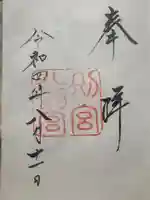 奉拝
別宮
令和四年八月十一日